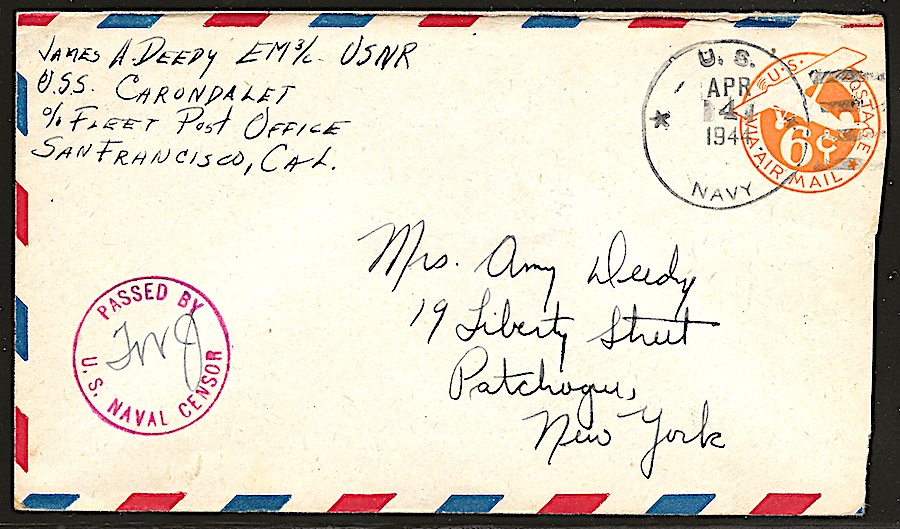 JAMES A. DEEDY EM3/c USNR
U.S.S. CARONDALET
c/o FLEET POST OFFICE
SAN FRANCISCO, CAL.
U. S.
APR
14
1944
NAVY
U.S. POSTAGE
6¢
VIA AIR MAIL
Mrs. Amy Deedy
19 Liberty Street
Patchogue,
New York
PASSED BY
U. S. NAVAL CENSOR